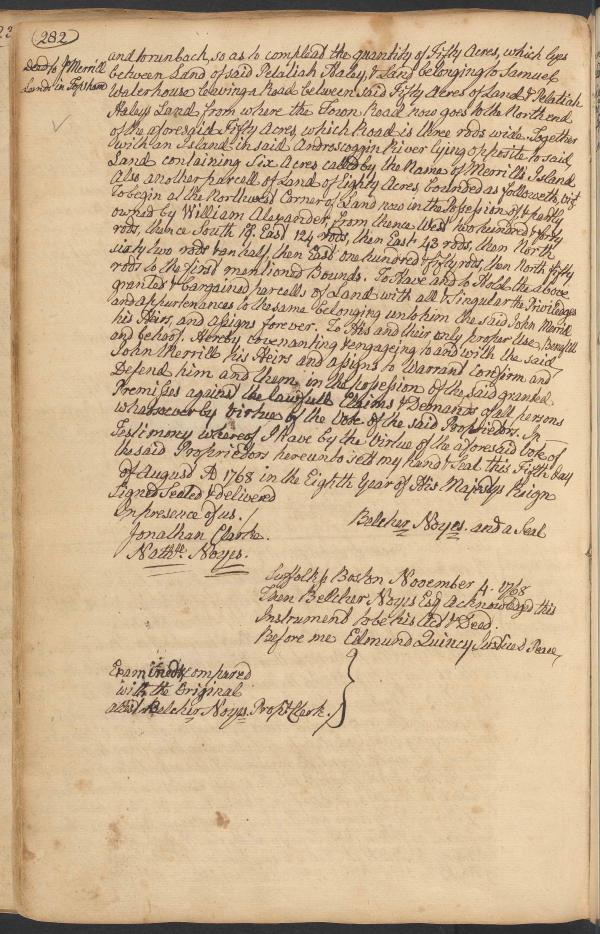 282
Deed to J Merrill
Land in Topsham
and to run back, so as to compleat the quantity of Fifty Acres, which lyes
between Land of said Pelatiah Haley, & Land belonging to Samuel
Waterhouse leaving a Road between said Fifty Acres of Land & Pelatiah
Haleys Land from where the Town Road now goes to the North end
of the aforesaid Fifty Acres which Road is three rods wide. Together
with an Island in said Androscoggin River lying opposite to said
Land containing Six Acres called by the Name of Merrills Island
Also another parcell of Land of Eighty Acres, bounded as followeth, vizt
To begin at the Northwest Corner of Land now in the Possession of & partly
owned by William Alexander, from thence West two hundred & forty
rods, thence South East 124 rods, then East 43 rods, then North
sixty two rods & an half, then East one hundred & fifty rods, then North & fifty
rods to the first mentioned Bounds. To Have and to Hold the above
granted & bargained parcells of Land with all & Singular the Priviledges
and appurtenances to the same belonging unto him the said John Merrill
his Heirs, and assigns forever. To his and their only proper Use Benefitt
and behoof. Hereby covenanting & engageing to and with the said
John Merrill his Heirs and assigns to Warrant Confirm and
Defend him and them in the possession of the said granted
Premisses against the lawfull Claims & Demands of all persons
whomsoever by virtue of the Vote of the said Proprietors. In
Testimony whereof I Have by the Virtue of the aforesaid Vote of
the said Proprietors hereunto sett my Hand & Seal this Fifth day
of August A 1768 in the Eighth Year of His Majestys Reign
Signed Sealed & delivered
in presence of us.
Belcher Noyes. and a Seal
Jonathan Clarke.
Nathll Noyes.
Suffolk ss Boston November 4. 1768
Then Belcher Noyes Esq Acknowledged this
Instrument to be his Act & Deed.
Before me Edmund Quincy Justice Peace
Examined & compared
with the Original
attest Belcher Noyes. Proprs Clerk.